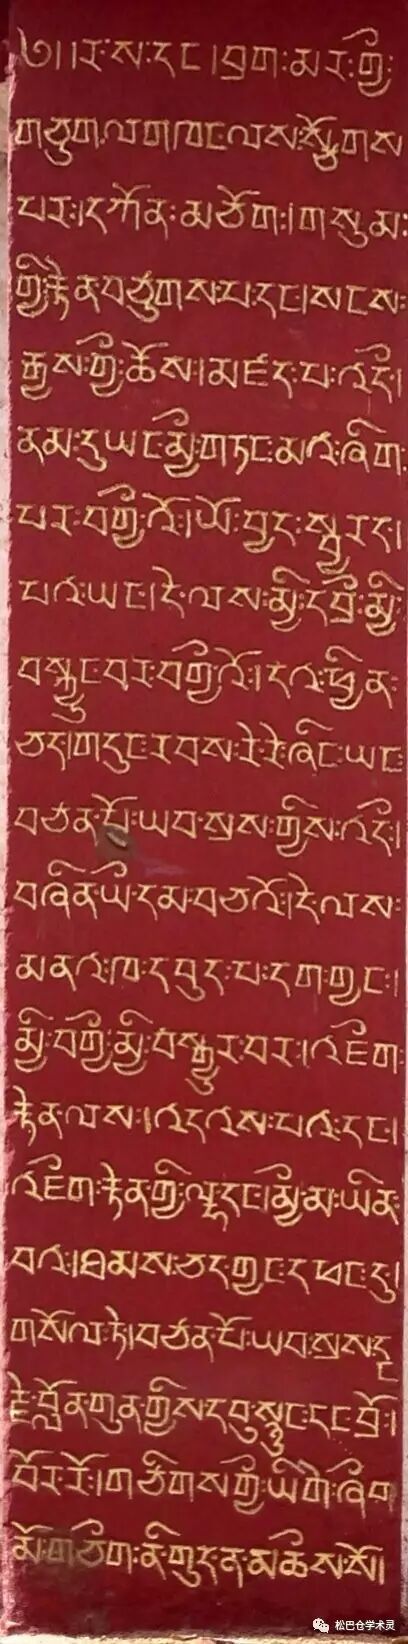 ༄། །ར་ས་དང་། བྲག་མར་གྱྀ་
གཙུག་ལག་ཁང་ལས་སྩོགས་
པར། དཀོན་མཅོག་།གསུམ་
གྱི་རྟེན་བཙུགས་པ་དང། སངས་
རྒྱས་གྱྀ་ཆོས། མཛད་པ་འདི།
ནམ་དུ་ཡང་མྱྀ་གཏང་མའ་ཞིག་
པར་བགྱྀའོ། །ཡོ་བྱད་སྦྱརད།
པའ་ཡང་། དེ་ལས་མྱི་དབྲི་མྱི་
བསྐྱུང་བར་བགྱྀའོ། །དའ་ཕྱིན་
ཅད། གདུང་རབས་རེ་རེ་ཞིང་ཡང་
བཙན་པོ་ཡབ་སྲས་གྱིས་འདི།
བཞིན་ཡི་དམ་བཅའོ། །དེ་ལས་
མནའ་ཁ་དབུད་པ་དག་ཀྱང་།
མྱི་བགྱི་མྱི་བསྒྱུར་བར། །འཇིག་
རྟེན་ལས། འདའས་པའ་དང་།
འཇིག་རྟེན་གྱི་ལྷ་དང། མྱི་མ་ཡིན་
བའ། ཐམས་ཅད་ཀྱང་དཔང་དུ།
གསོལ་ཏེ། བཙན་པོ་ཡབ་སྲས་དང་
རྗེ་བློན་གུན་གྱིས་དབུ་སྙུང་དང་བྲོ།
བོར་རོ། །གཙིགས་གྱི་ཡི་གེ་ཞིབ་
མོ་གཅིག་ནི་གུད་ན་མཆིས་སོ།
松巴仓学术灵